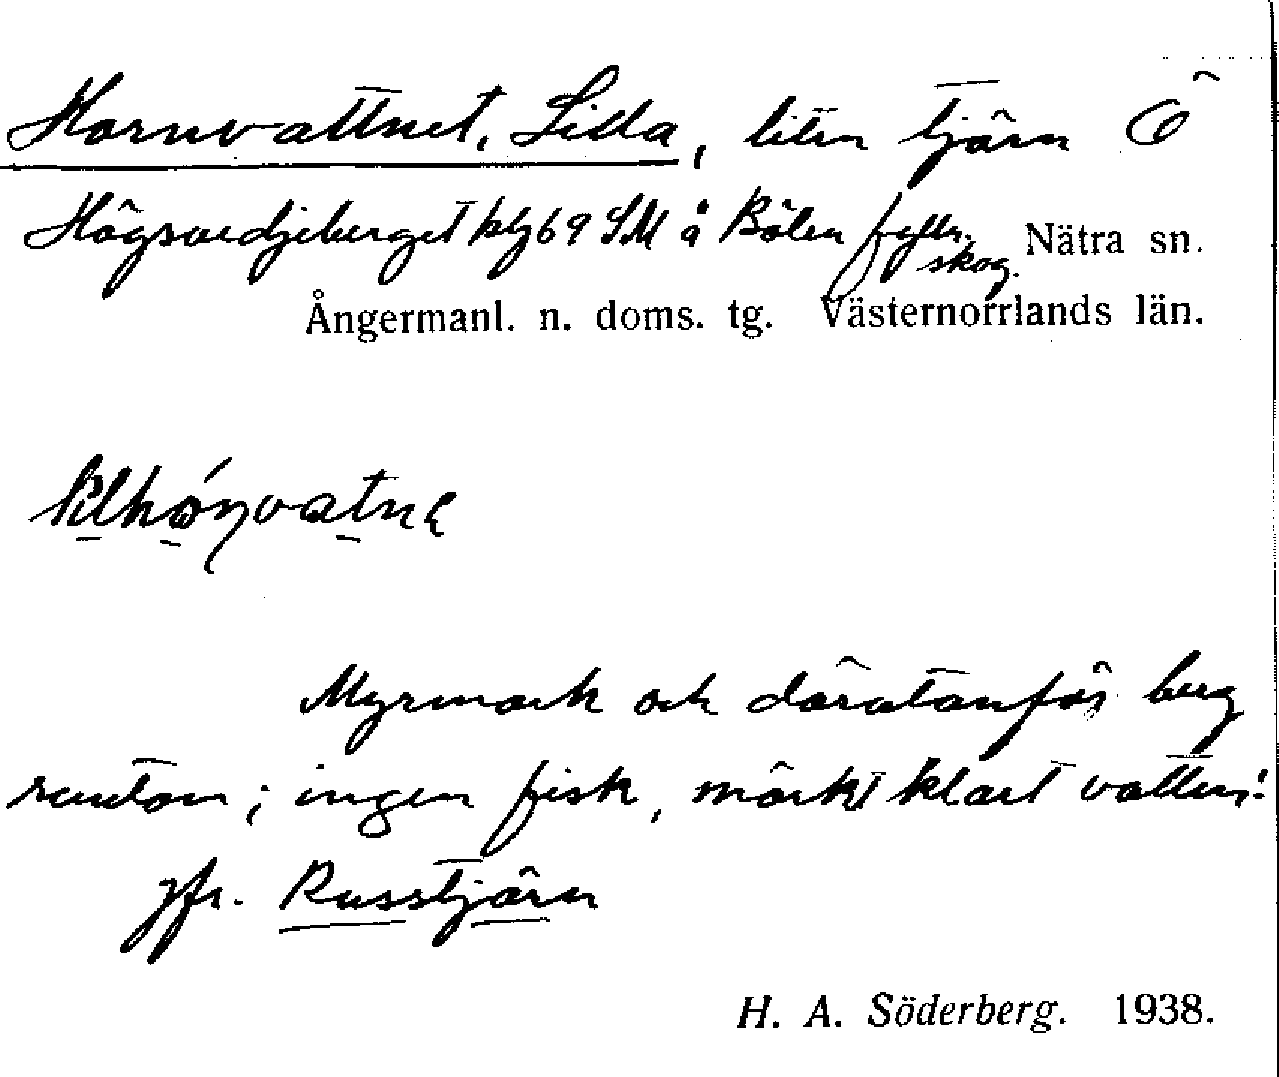 Hornvattnet, Lilla, liten tjärn Ö
Högsvedjeberget blg 69 SM å Bölen
skog. Nätra sn.
Ångermanl. n. doms. tg. Västernorrlands län.
Myrmark och därutanför berg
runtom; ingen fisk, mörkt klart vatten!
jfr. Russtjärn
H. A. Söderberg. 1938.